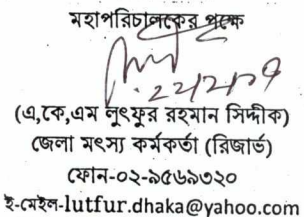 মহাপরিচালকের পক্ষে
(এ,কে,এম লুৎফুর রহমান সিদ্দীক)
জেলা মৎস্য কর্মকর্তা (রিজার্ভ)
ফোন-০২-৯৫৬৯৩২০
ই-মেইল-lutfur.dhaka@yahoo.com